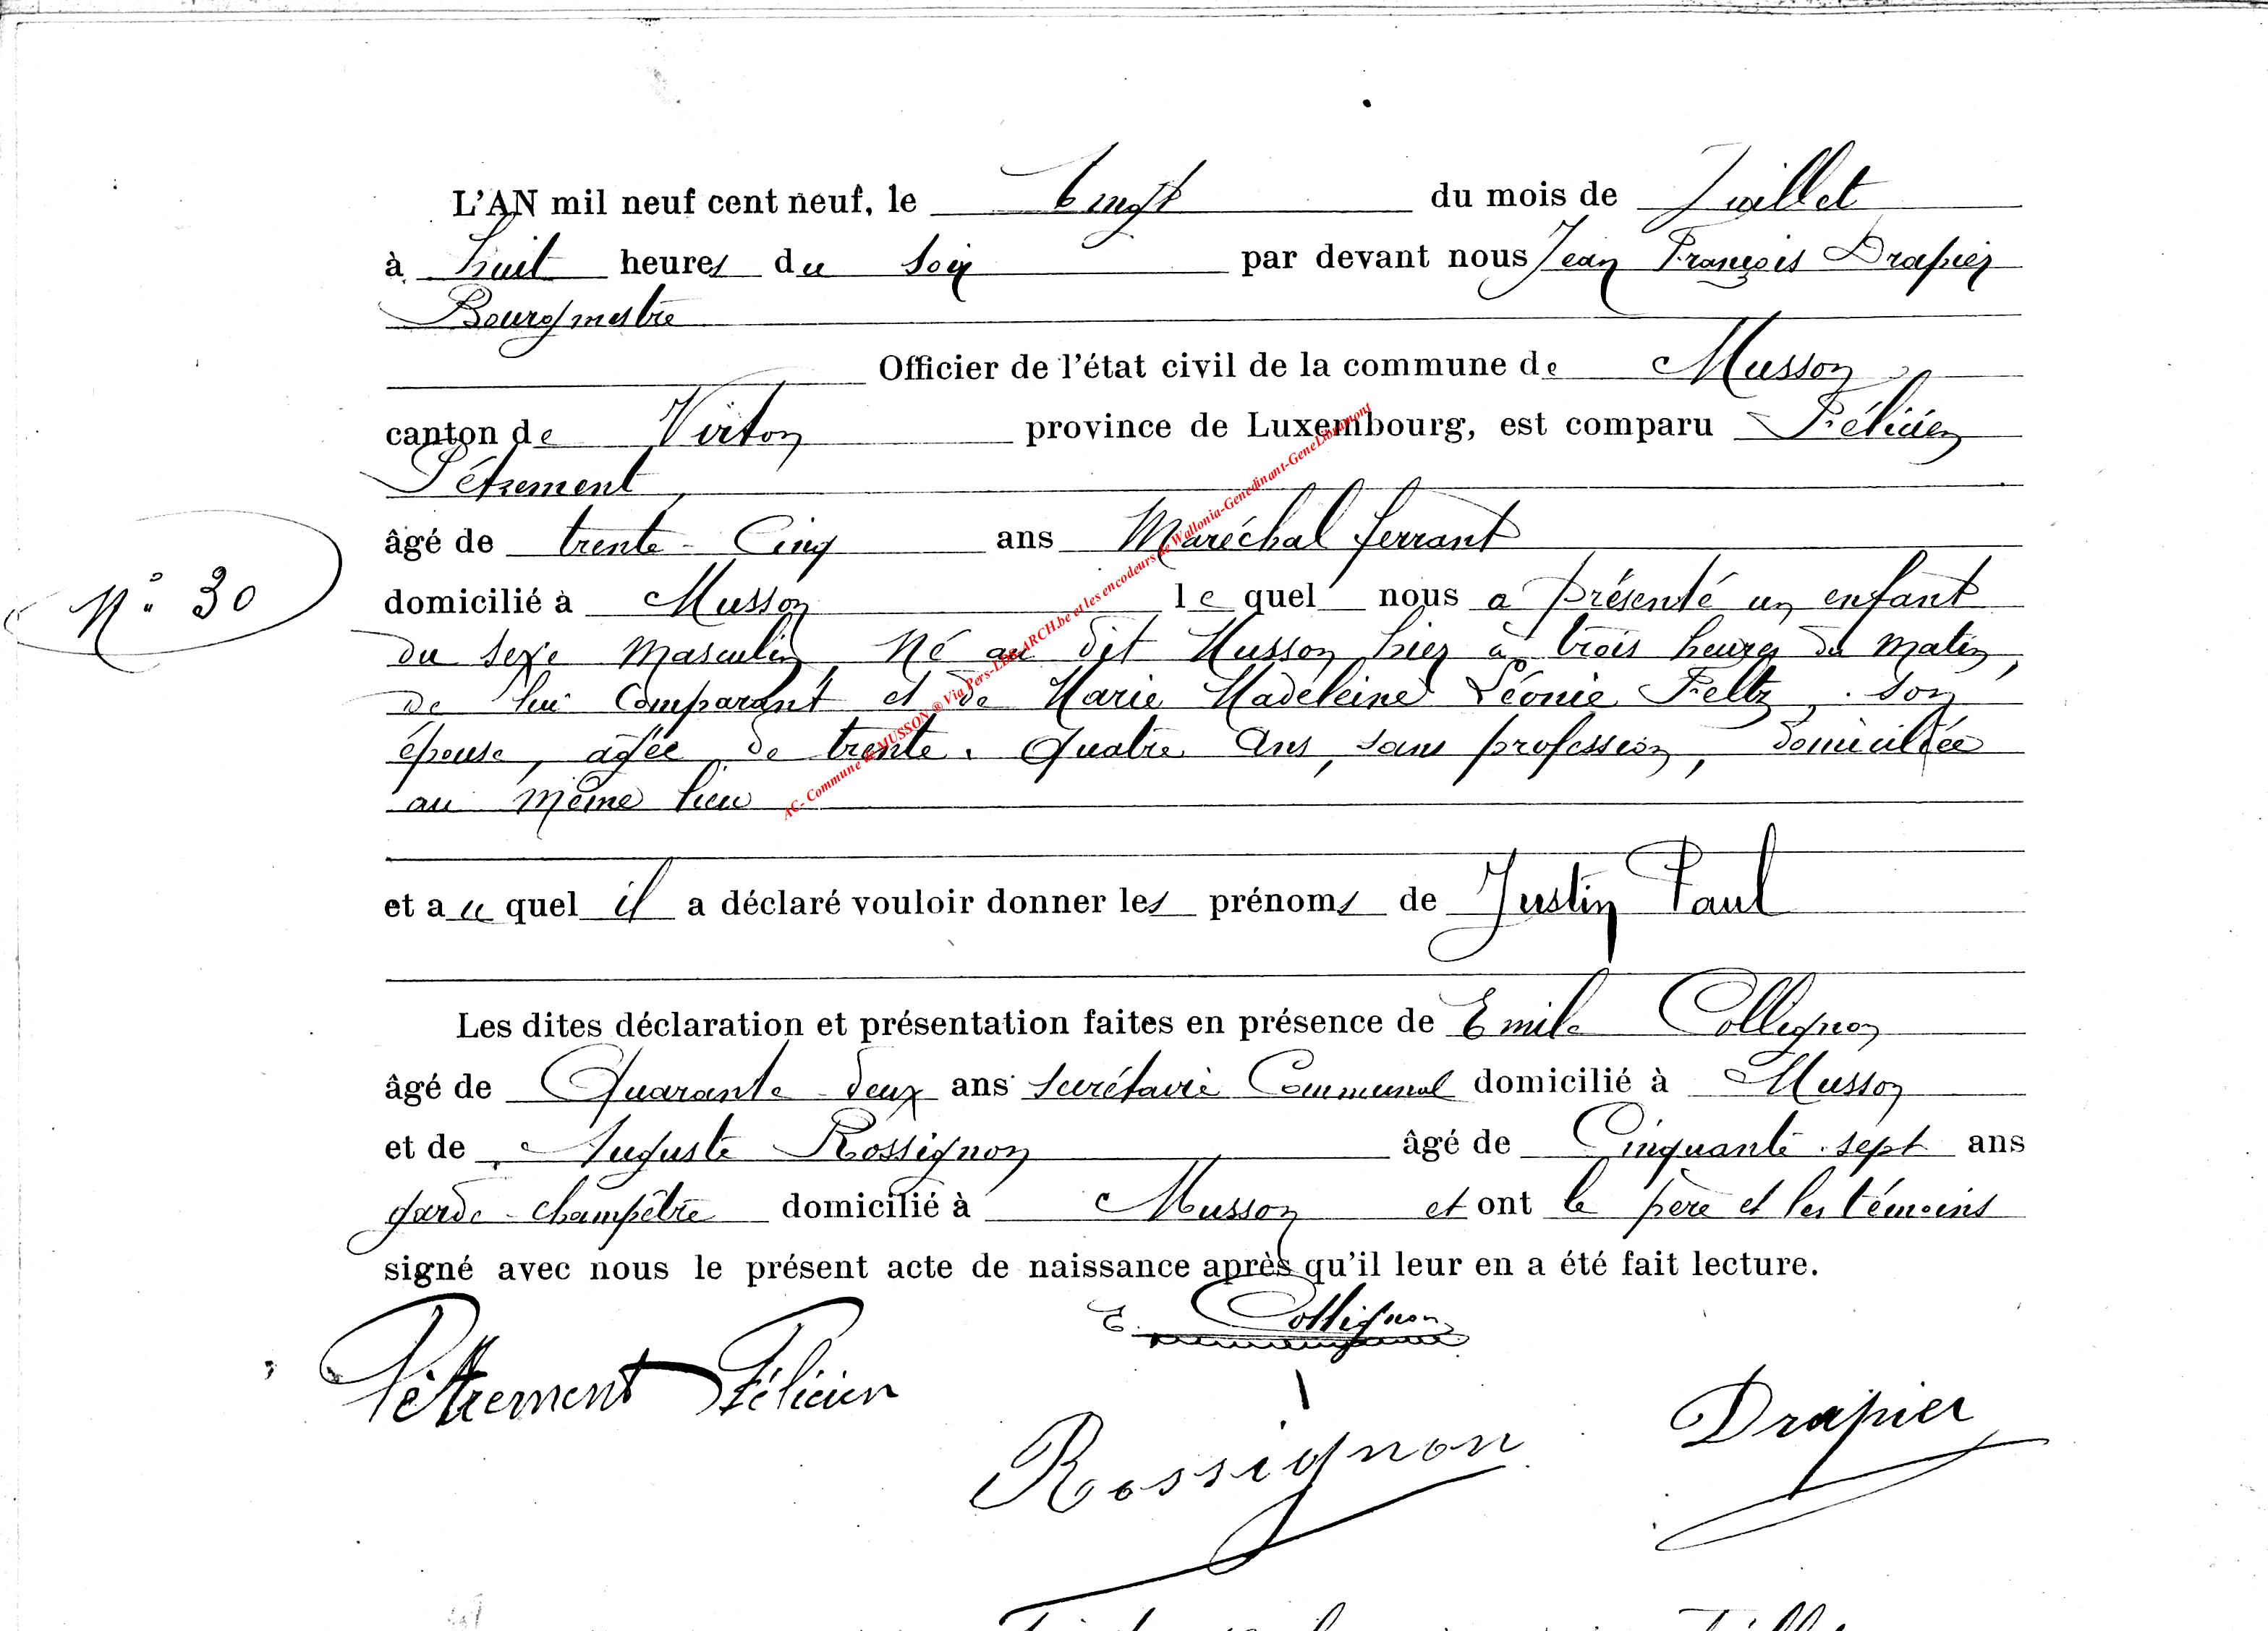 L'AN mil neuf cent neuf, le Vingt du mois de Juillet
à huit heures du soir par devant nous Jean François Drapier
Bourgmestre
Officier de l'état civil de la commune de Musson
canton de Virton province de Luxembourg, est comparu Félicien
Pétrement,
âgé de trente-Cinq ans Maréchal ferrant
N° 30
domicilié à Musson lequel nous a présenté un enfant
du sexe Masculin, Né au dit Musson hier à trois heures du matin,
de lui Comparant et de Marie Madeleine Léonie Feltz, son
épouse, agée de trente-quatre ans, sans profession, domiciliée
au même lieu
AC- Commune de MUSSON ® Via Pers-LDB-ARCH.be et les encodeurs de Wallonia-Genedinant-GeneLibramont
et auquel il a déclaré vouloir donner les prénoms de Justin Paul
Les dites déclaration et présentation faites en présence de Emile Collignon
âgé de Quarante-deux ans secrétaire Communal domicilié à Musson
et de Auguste Rossignon âgé de Cinquante-sept ans
garde-champêtre domicilié à Musson et ont le père et les témoins
signé avec nous le présent acte de naissance après qu'il leur en a été fait lecture.
E. Collignon
Pètrement Félicien
Rossignon
Drapier